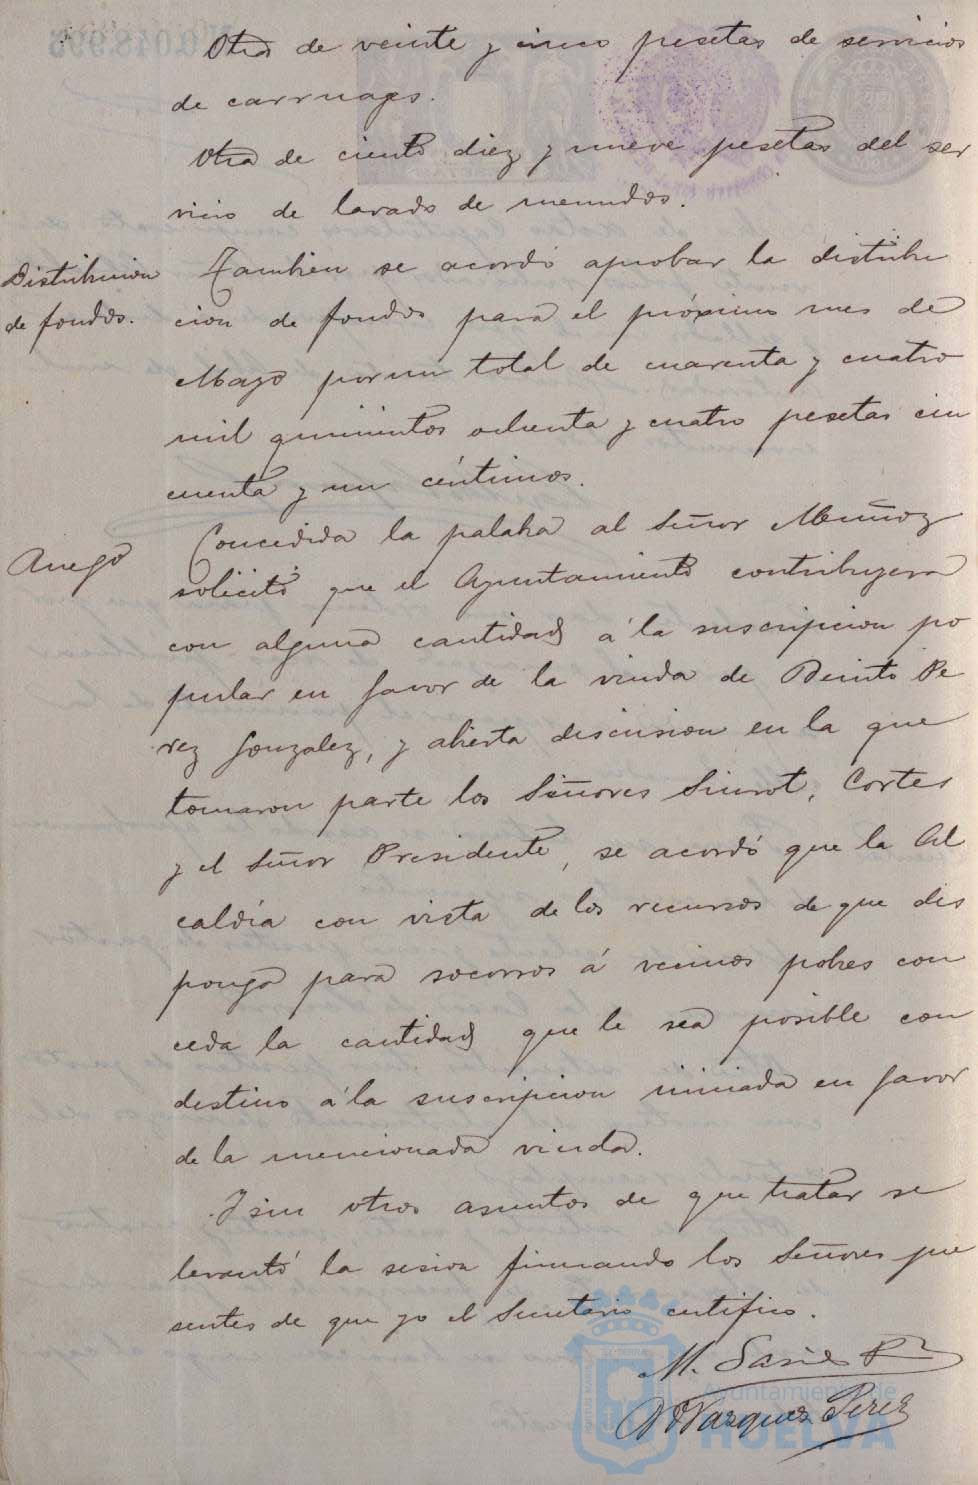 Otra de veinte y cinco pesetas de servicios
de carruages.
Otra de ciento diez y nueve pesetas del ser
vicio de lavado de menudos.
Distribucion
de fondos.
Tambien se acordó aprobar la distribu
cion de fondos para el próximo mes de
Mayo por un total de cuarenta y cuatro
mil quinientos ochenta y cuatro pesetas cin
cuenta y un céntimos.
Ruego
Concedida la palabra al Señor Muñoz
solicitó que el Ayuntamiento contribuyera
con alguna cantidad á la suscripcion po
pular en favor de la viuda de Benito Pe
rez Gonzalez, y abierta discusion en la que
tomaron parte los Señores Siurot, Cortes
y el Señor Presidente, se acordó que la Al
caldía con vista de los recursos de que dis
ponga para socorros á vecinos pobres con
ceda la cantidad que le sea posible con
destino á la suscripcion iniciada en favor
de la mencionada viuda.
Y sin otros asuntos de que tratar se
levantó la sesion firmando los Señores pre
sentes de que yo el Secretario certifico.
M.
Vazquez Perez
Ayuntamiento de
HUELVA